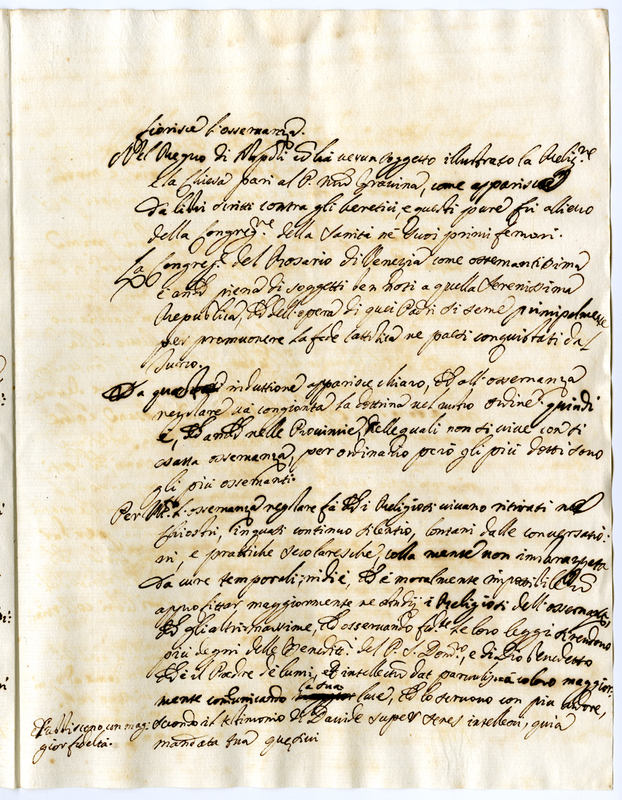 fiorisce l'osservanza.
Nel Regno di Napoli verun soggetto illustrato la Relig.ne
e la Chiesa pari al P. Gravina, come apparisce
da libri scritti contra gli heretici, e questi pure fù allievo
della Congreg.ne della Sanità ne suoi primi fervori.
La Congreg.e del Rosario di Venezia come osservantissima
è piena di soggetti ben noti a quella Serenissima
Republica, dell'opera di quei Padri si serve principalmente
per promuovere la fede Cattolica ne paesi conquistati dal
Turco.
Da induttione apparisce chiaro, all'osservanza
regolare sia congionta la dottrina nel nostro ordine: quindi
è, nelle Provincie, nelle quali non si vive con sì
esatta osservanza, per ordinario però gli più dotti sono
gli più osservanti.
Per osservanza regolare fà i Religiosi vivano ritirati ne
Chiostri, in quasi continuo silentio, lontani dalle conversatio:
ni, e prattiche secolaresche, colla mente non imbarazzata
da cure temporali; indi è, è moralmente impossibile
approfittar maggiormente ne studij i Religiosi dell'osservanza
gli altri: massime, osservando le loro leggi si rendono
più degni delle Beneditt.i del P. S. Dom.co, e di Dio Benedetto
è il Padre de lumi, et intellectum dat parvulis: a coloro maggior:
mente comunicando la sua luce, lo servono con più amore,
e l'ubbidiscono con mag:
gior fedeltà.
secondo il testimonio di Davide super senes intellexi, quia
mandata tua quesivi